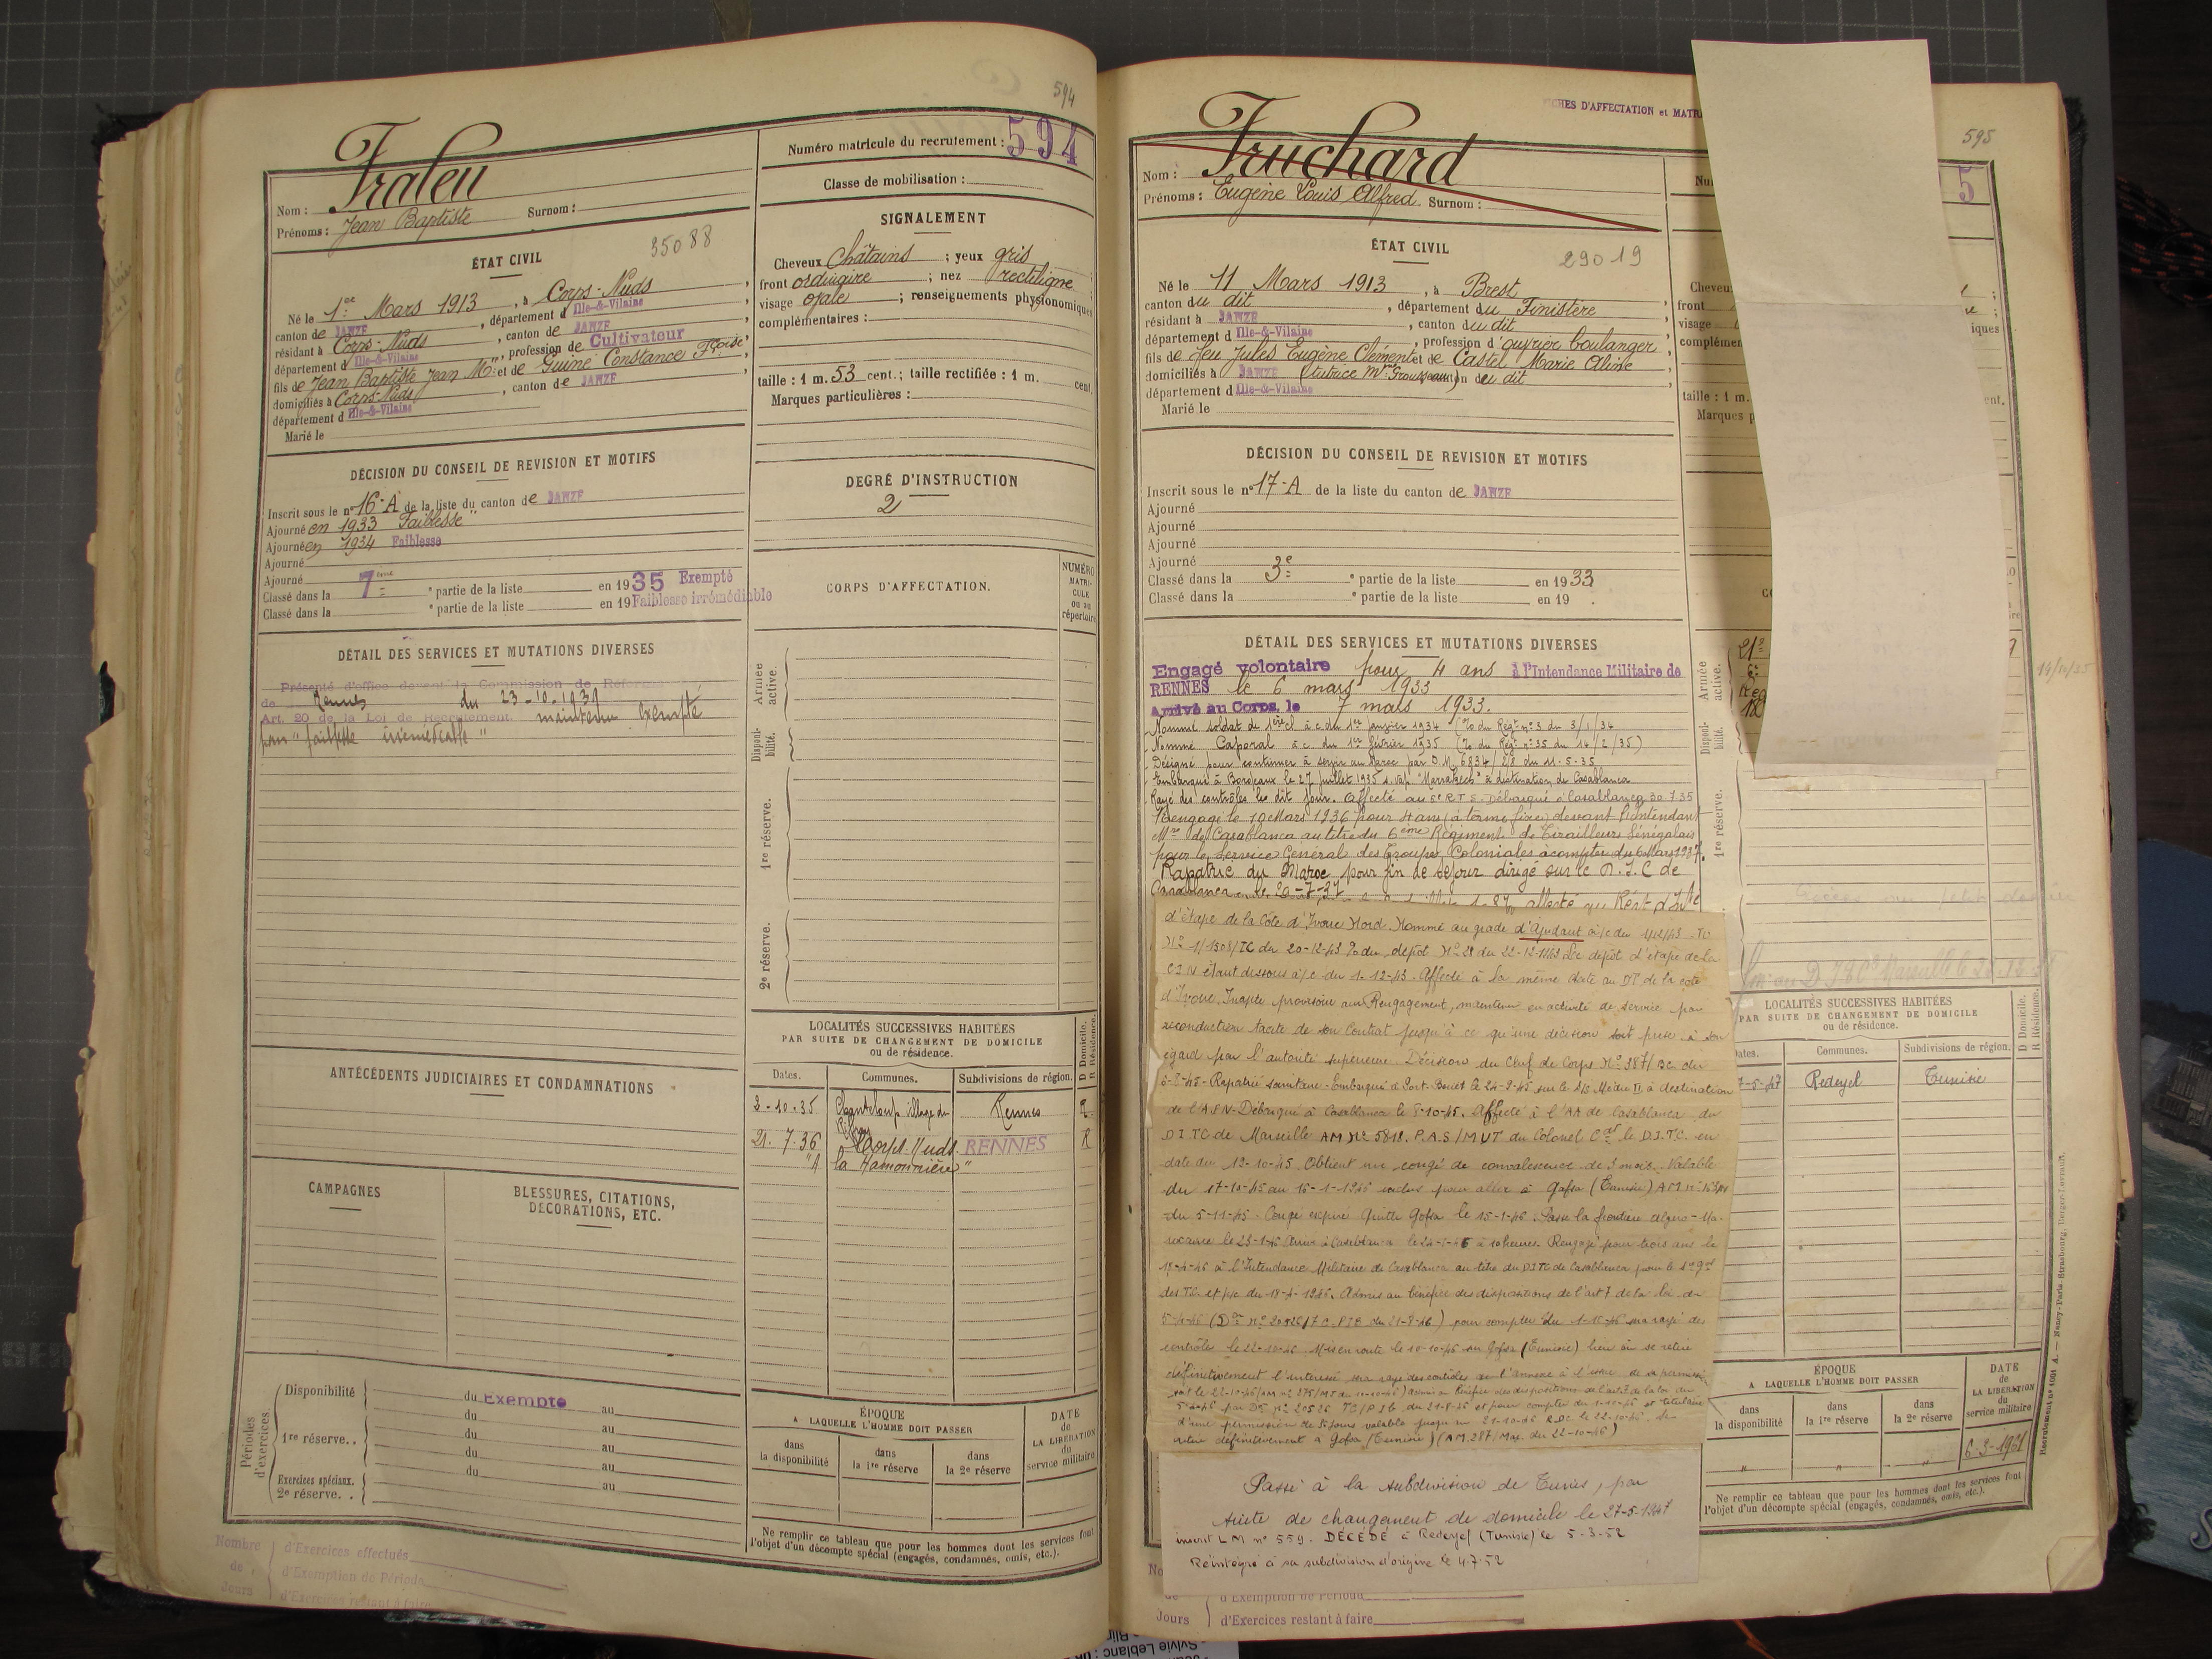 594
Numéro matricule du recrutement : 594
Classe de mobilisation :
Nom : Fraleu
Prénoms : Jean Baptiste Surnom :
ÉTAT CIVIL
35088
Né le 1er Mars 1913, à Corps-Nuds,
canton de JANZÉ, département d Ille-&-Vilaine,
résidant à Corps-Nuds, canton de JANZÉ,
département d Ille-&-Vilaine, profession de Cultivateur,
fils de Jean Baptiste Jean M. et de Guiné Constance Fçoise,
domiciliés à Corps-Nuds, canton de JANZÉ,
département d Ille-&-Vilaine
Marié le
SIGNALEMENT
Cheveux Châtains ; yeux gris ;
front ordinaire ; nez rectiligne ;
visage ovale ; renseignements physionomiques
complémentaires :
taille : 1 m. 53 cent.; taille rectifiée : 1 m. cent.
Marques particulières :
DÉCISION DU CONSEIL DE REVISION ET MOTIFS
Inscrit sous le n° 16-A de la liste du canton de JANZÉ
Ajourné en 1933 "Faiblesse"
Ajourné en 1934 Faiblesse
Ajourné
Ajourné
Classé dans la 7ème partie de la liste en 1935 Exempté
Classé dans la e partie de la liste en 19 Faiblesse irrémédiable
DEGRÉ D'INSTRUCTION
2
CORPS D'AFFECTATION.
NUMÉRO MATRICULE ou au répertoire
DÉTAIL DES SERVICES ET MUTATIONS DIVERSES
Présenté d'office devant la Commission de Réforme
de Rennes du 23-10-1939
Art. 20 de la Loi de Recrutement. maintenu Exempté
pour "faiblesse irrémédiable"
Armée active.
Disponibilité.
1re réserve.
2e réserve.
LOCALITÉS SUCCESSIVES HABITÉES
PAR SUITE DE CHANGEMENT DE DOMICILE
ou de résidence.
D Domicile. R Résidence.
Dates. Communes. Subdivisions de région.
3-10-35 Chanteloup village du Rennes R
21.7.36 Corps-Nuds RENNES R
"A la Hamonnière"
ANTÉCÉDENTS JUDICIAIRES ET CONDAMNATIONS
CAMPAGNES
BLESSURES, CITATIONS, DÉCORATIONS, ETC.
Périodes d'exercices.
Disponibilité du Exempté au
du au
1re réserve.. du au
du au
Exercices spéciaux. du au
2e réserve. .
ÉPOQUE
A LAQUELLE L'HOMME DOIT PASSER
dans la disponibilité
dans la 1re réserve
dans la 2e réserve
DATE DE LA LIBÉRATION du service militaire
Ne remplir ce tableau que pour les hommes dont les services font
l'objet d'un décompte spécial (engagés, condamnés, omis, etc.).
Nombre de Jours
d'Exercices effectués
d'Exemption de Période
d'Exercices restant à faire
595
FICHES D'AFFECTATION et MATR
5
Nom : Fruchard
Prénoms : Eugène Louis Alfred. Surnom :
ÉTAT CIVIL
29019
Né le 11 Mars 1913, à Brest,
canton du dit, département du Finistère,
résidant à JANZÉ, canton du dit,
département d Ille-&-Vilaine, profession d'ouvrier boulanger,
fils de feu Jules Eugène Clément et de Castel Marie Aline,
domiciliés à JANZÉ (tutrice Mme Grousseau) canton du dit,
département d Ille-&-Vilaine
Marié le
Cheveux
front
visage
iques
taille : 1 m.
DÉCISION DU CONSEIL DE REVISION ET MOTIFS
Inscrit sous le n° 17-A de la liste du canton de JANZÉ
Ajourné
Ajourné
Ajourné
Ajourné
Classé dans la 3e partie de la liste en 1933
Classé dans la e partie de la liste en 19 .
DÉTAIL DES SERVICES ET MUTATIONS DIVERSES
Engagé volontaire pour 4 ans à l'Intendance Militaire de
RENNES le 6 mars 1933
Arrivé au Corps, le 7 mars 1933.
Nommé soldat de 1ère cl à c. du 1er janvier 1934 (% du Régt n°3 du 3/1/34
Nommé Caporal à c. du 1er février 1935 (% du Régt n°35 du 14/2/35)
Désigné pour continuer à servir au Maroc par D.M. 6834/2/8 du 11.5.35
Embarqué à Bordeaux le 27 juillet 1935 s. vap. "Marrakech" à destination de Casablanca
Rayé des contrôles le dit jour. Affecté au 5e R.T.S. Débarqué à Casablanca 30.7.35
Rengagé le 10 Mars 1936 pour 4 ans (à terme fixe) devant l'Intendant
Mre de Casablanca au titre du 6ème Régiment de Tirailleurs Sénégalais
pour le Service Général des Troupes Coloniales à compter du 6 Mars 1937.
Rapatrié du Maroc pour fin de séjour dirigé sur le D.I.C de
Casablanca 20-7-37
d'étape de la Côte d'Ivoire Nord. Nommé au grade d'Adjudant à/c du 1/12/43 - TO
N° 1/1508/TC du 20-12-43 % du dépôt N° 28 du 22-12-1943 Le dépôt d'étape de la
C.I.N étant dissous à/c du 1-12-43. Affecté à la même date au DT de la cote
d'Ivoire. Inapte provisoire au Rengagement, maintenu en activité de service par
reconduction tacite de son Contrat jusqu'à ce qu'une décision soit prise à son
égard par l'autorité supérieure. Décision du Chef de Corps N° 387/Bc. du
6-8-45 - Rapatrié sanitaire - Embarqué à Port-Bouet le 24-9-45 sur le S/S Médie II à destination
de l'A.F.N - Débarqué à Casablanca le 8-10-45. Affecté à l'AA de Casablanca du
D.I.TC de Marseille AM N° 5818. P.A.S/MUT du Colonel Cdt le D.I.TC. en
date du 19-10-45. Obtient un congé de convalescence de 3 mois. Valable
du 17-10-45 au 16-1-1946 inclus pour aller à Gafsa (Tunisie)
du 5-11-45. Congé expiré Quitte Gafsa le 15-1-46. Passe la frontière algéro-Ma-
rocaine le 23-1-46 Arrive à Casablanca le 24-1-46 à 10 heures. Rengagé pour trois ans le
17-4-46 à l'Intendance Militaire de Casablanca au titre du DITC de Casablanca pour le
des TC et p/c du 18-4-1946. Admis au bénéfice des dispositions de l'art 7 de la loi du
5-4-46 (Don N° 20526/TC.PJB du 21-8-46) pour compter du 1-10-46 sera rayé des
contrôles le 22-10-46. Mis en route le 10-10-46 sur Gafsa (Tunisie) lieu où se retire
définitivement l'intéressé sera rayé des contrôles de l'annexe à l'issue de sa permission
soit le 22-10-46 admis au bénéfice des dispositions de l'art. 7 de la loi du
5-4-46 par Don N° 20526 TC/PJB du 21-8-46 et pour compter du 1-10-46 et titulaire
d'une permission de jours valable jusqu'au 21-10-46 RDC le 22-10-46. Se
retire définitivement à Gafsa (Tunisie) (AM 287/Mar. du 22-10-46)
Passé à la subdivision de Tunis, par
suite de changement de domicile le 27-5-1947
inscrit LM n° 559. DÉCÉDÉ à Redeyef (Tunisie) le 5-3-52
Réintégré à sa subdivision d'origine le 4.7.52
Armée active.
Disponibilité.
1re réserve.
14/11/35
LOCALITÉS SUCCESSIVES HABITÉES
PAR SUITE DE CHANGEMENT DE DOMICILE
ou de résidence.
D Domicile. R Résidence.
Dates. Communes. Subdivisions de région.
7-5-47 Redeyef Tunisie
ÉPOQUE
A LAQUELLE L'HOMME DOIT PASSER
dans la disponibilité
dans la 1re réserve
dans la 2e réserve
DATE DE LA LIBÉRATION du service militaire
" " "
Ne remplir ce tableau que pour les hommes dont les services font
l'objet d'un décompte spécial (engagés, condamnés, omis, etc.).
Recrutement n° 1001 A. — Nancy-Paris-Strasbourg, Berger-Levrault.
Jours
d'Exemption de Période
d'Exercices restant à faire
Sylvie Leblanc